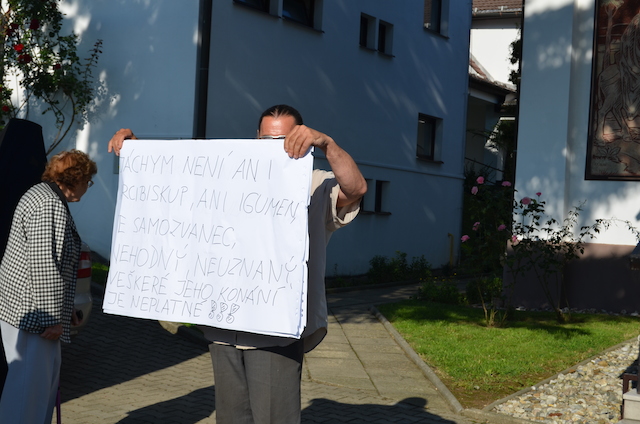 JÁCHYM NENÍ ANI
ARCIBISKUP, ANI IGUMEN,
JE SAMOZVANEC,
NEHODNÝ, NEUZNANÝ,
VEŠKERÉ JEHO KONÁNÍ
JE NEPLATNÉ !!!